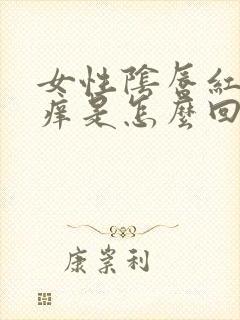 女性陰唇紅
痒是怎麼回
康崇利